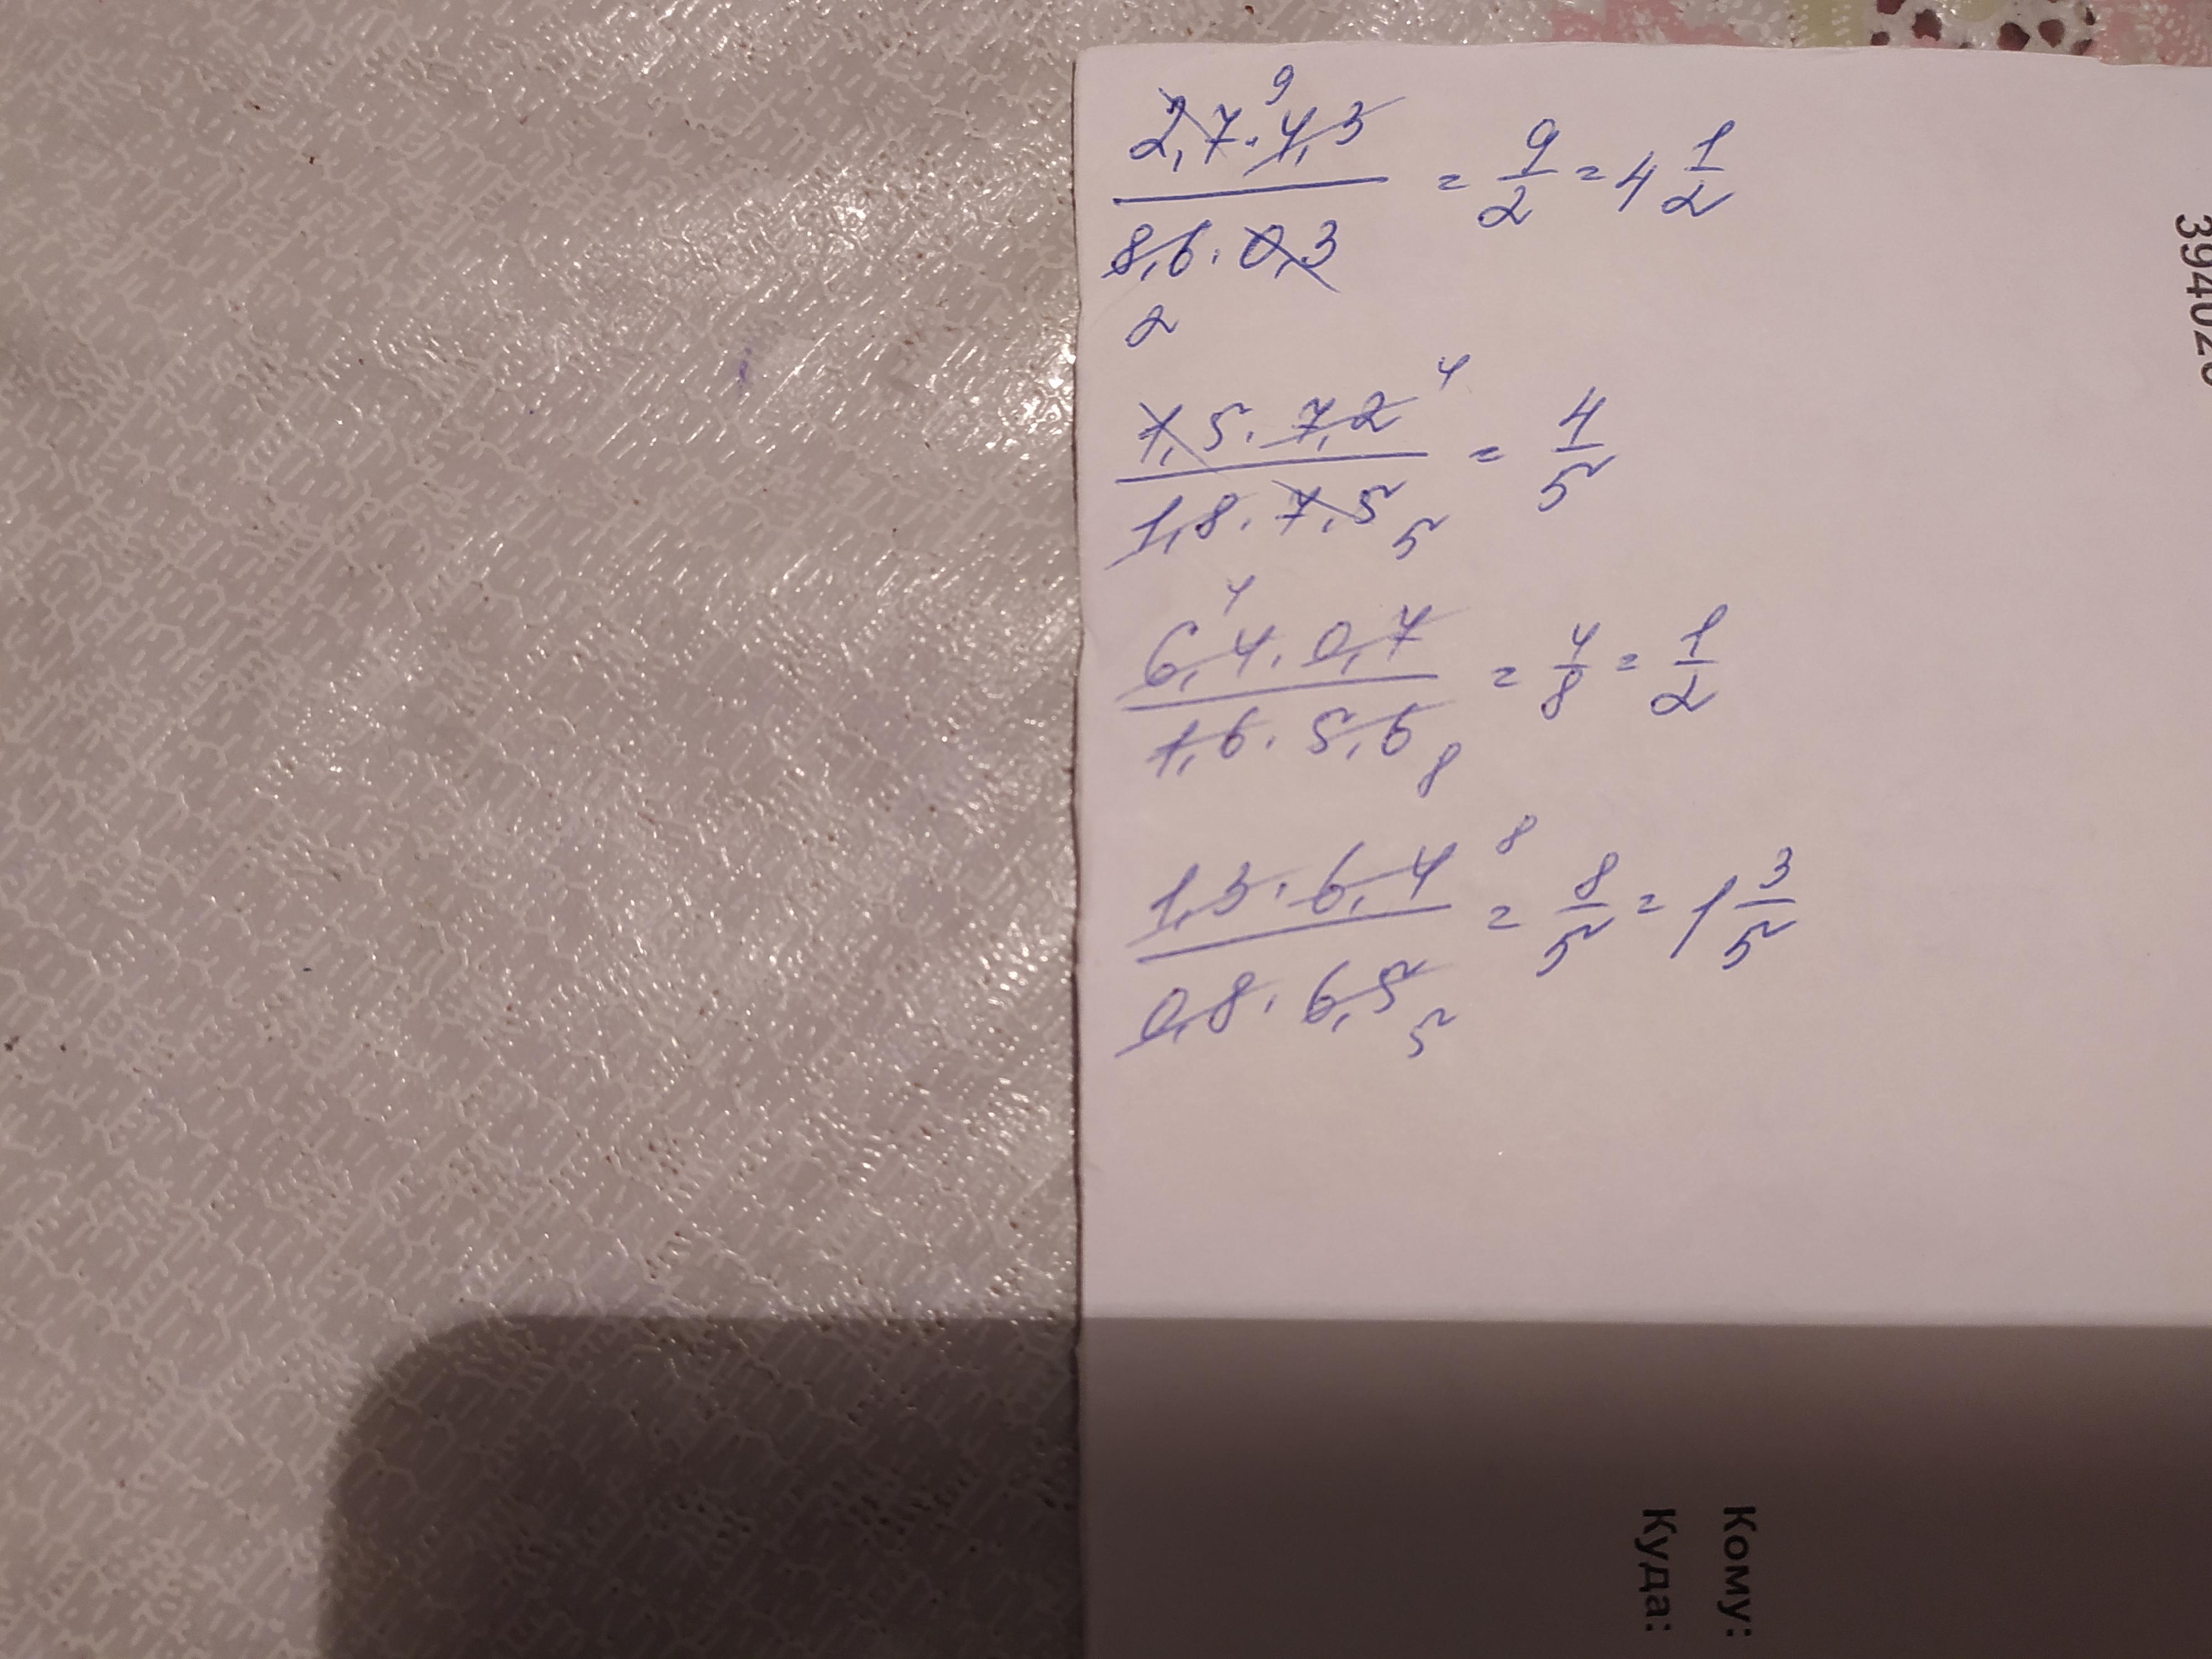 (2,7 · 4,3)/(8,6 · 0,3) = 9/2 = 4 1/2
9
2
(1,5 · 7,2)/(1,8 · 7,5) = 4/5
4
5
(6,4 · 0,7)/(1,6 · 5,6) = 4/8 = 1/2
4
8
(1,3 · 6,4)/(0,8 · 6,5) = 8/5 = 1 3/5
8
5
Кому:
Куда: